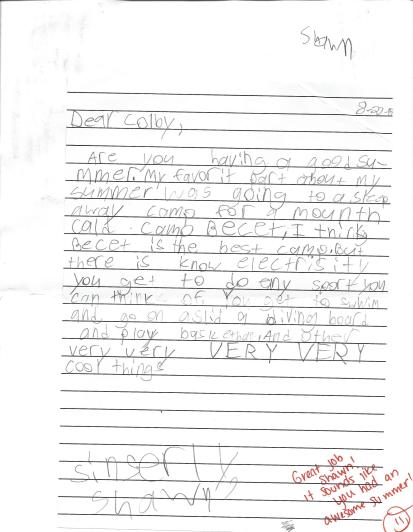 Shawn
Dear Colby,
Are you having a good su-
mmer. My favorit part about my
summer was going to a sleep
away camp for a mounth
cald camp Becet, I think
Becet is the best camp. But
there is know electrisity
you get to do any sport you
can think of. You get to swim
and go on a slid a diving board
and play And other
very very VERY VERY
cool things
sinserly,
Shawn
Great job
Shawn!
it sounds like
you had an
awesome summer!